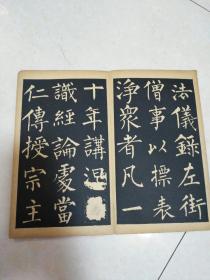 法儀錄左街
僧事以標表
淨衆者凡一
十年講涅
識經論處當
仁傳授宗主